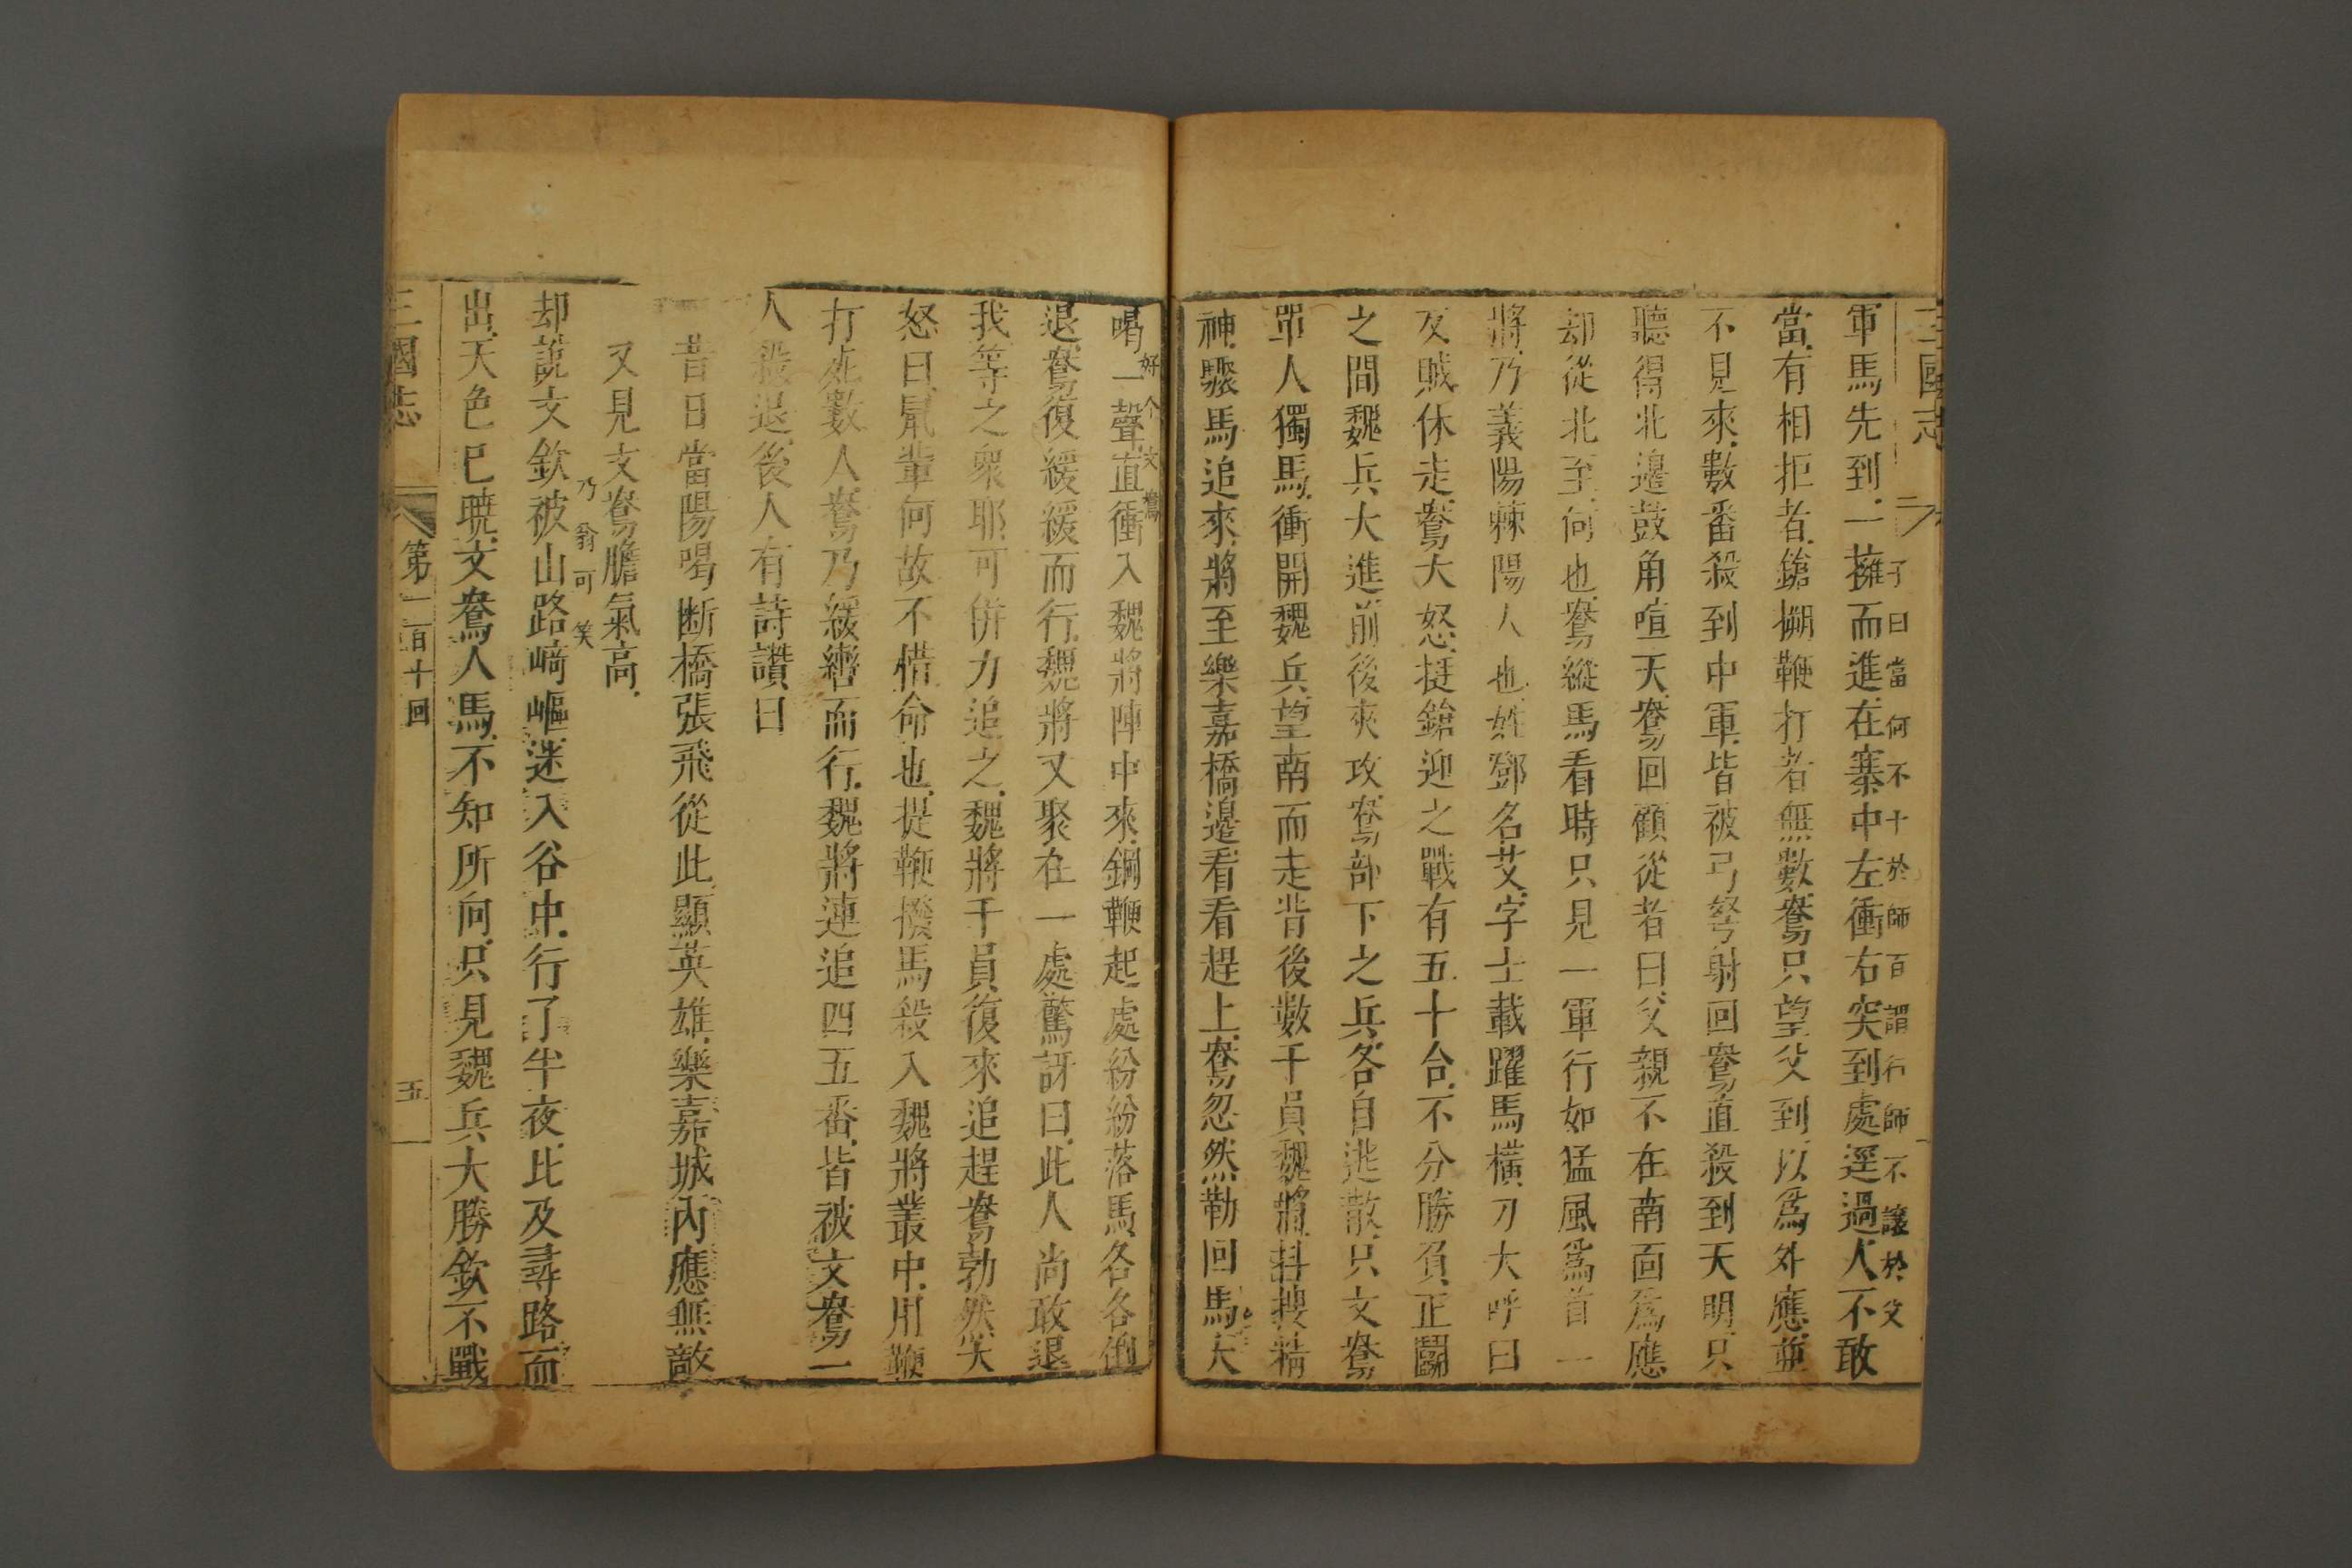 三國志
子曰當何不十於師百謂行師不讓於父
軍馬先到一擁而進在寨中左衝右突到處逕過人不敢
當有相拒者鎗搠鞭打者無數鴦只望父到以爲外應並
不見來數番殺到中軍皆被弓弩射回鴦直殺到天明只
聽得北邊鼓角喧天鴦回顧從者曰父親不在南面爲應
却從北至何也鴦縱馬看時只見一軍行如猛風爲首一
將乃義陽棘陽人也姓鄧名艾字士載躍馬橫刀大呼曰
反賊休走鴦大怒挺鎗迎之戰有五十合不分勝負正鬭
之間魏兵大進前後夾攻鴦部下之兵各自逃散只文鴦
單人獨馬衝開魏兵望南而走背後數千員魏將抖搜精
神驟馬追來將至樂嘉橋邊看看趕上鴦忽然勒回馬大
好个文鴦
喝一聲直衝入魏將陣中來鋼鞭起處紛紛落馬各各倒
退鴦復緩緩而行魏將又聚在一處驚訝曰此人尚敢退
我等之衆耶可併力追之魏將千員復來追趕鴦勃然大
怒曰鼠輩何故不惜命也提鞭撥馬殺入魏將叢中用鞭
打死數人鴦乃緩轡而行魏將連追四五番皆被文鴦一
人殺退後人有詩讚曰
昔日當陽喝断橋張飛從此顯英雄樂嘉城內應無敵
又見文鴦膽氣高
乃翁可笑
却說文欽被山路崎嶇迷入谷中行了半夜比及尋路而
出天色已曉文鴦人馬不知所向只見魏兵大勝欽不戰
三國志
第一百十回
五